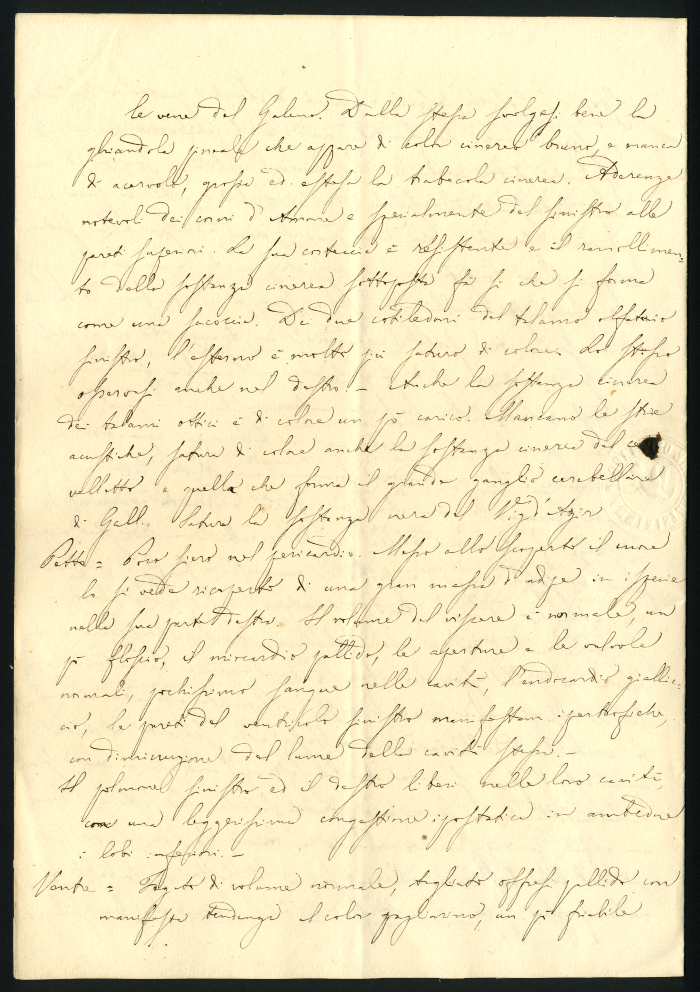 le vene del Galeno. Dalla stessa svolgesi bene la
ghiandola pineale che appare di color cinereo bruno, e manca
di acervolo, grossa ed estesa la trabecola cinerea. Aderenze
notevoli dei corni d'Amone e specialmente del sinistro alle
pareti superiori. La sua corteccia è resistente e il ramollimen=
to della sostanza cinerea sottoposta fà si che si forma
come una saccoccia. Dei due cotiledoni del talamo olfattorio
sinistro, l'esterno è molto più saturo di colore. Lo stesso
osservasi anche nel destro. – Anche la sostanza cinerea
dei talami ottici è di colore un pò carico. Mancano le strie
acustiche, satura di colore anche la sostanza cinerea del
velletto e quella che forma il grande ganglio cerebellare
di Gall. Satura la sostanza nera del Viq d'Azir
Petto = Poco siero nel pericardio. Messo allo scoperto il cuore
lo si vede ricoperto di una gran massa d'adipe in ispecie
nella sua parte destra. Il volume del viscere è normale, un
pò floscio, il miocardio pallido, le aperture e le valvole
normali, pochissimo sangue nelle cavità, l'endocardio giallic=
cio, le pareti del ventricolo sinistro manifestam. ipertrofiche,
con diminuzione del lume della cavità stessa. –
Il polmone sinistro ed il destro liberi nelle loro cavità,
con una leggerissima congestione ipostatica in ambedue
i lobi inferiori. –
Ventre = Fegato di volume normale, tagliato offresi pallido con
manifesta tendenza al color giallino, un pò friabile